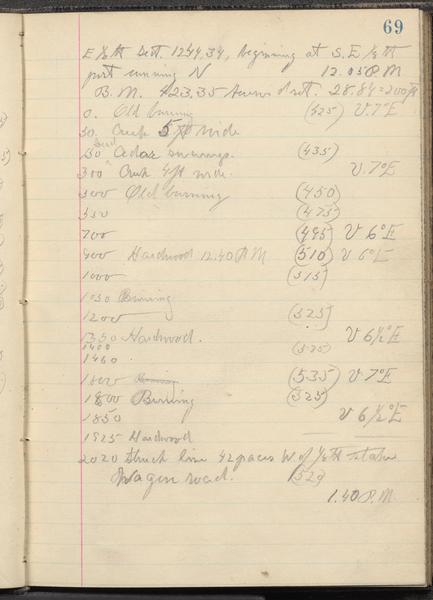 69
E ⅛th Sect. 12 & 34, beginning at S.E ⅛th
post running N 12.05 P.M
B.M. 423.35 28.84 = 200 ft
0. Old burning (425) V. 7°E
50. Creek 5 ft wide
150 Dead Cedar swamp. (435)
300 Creek 4 ft wide. V. 7°E
300 Old burning (450)
550 (475)
700 (495) V 6°E
900 Hardwood 12.40 P.M (510) V 6°E
1000 (515)
1050 Burning
1200 (525)
1350 Hardwood. V 6½°E
1400 (525)
1460.
1600 (535) V 7°E
1800 Burning (525)
1850 V 6½°E
1925 Hardwood
2020 Struck line 42 paces W. of ⅛th stake
Wagon road. (523)
1.40 P.M.